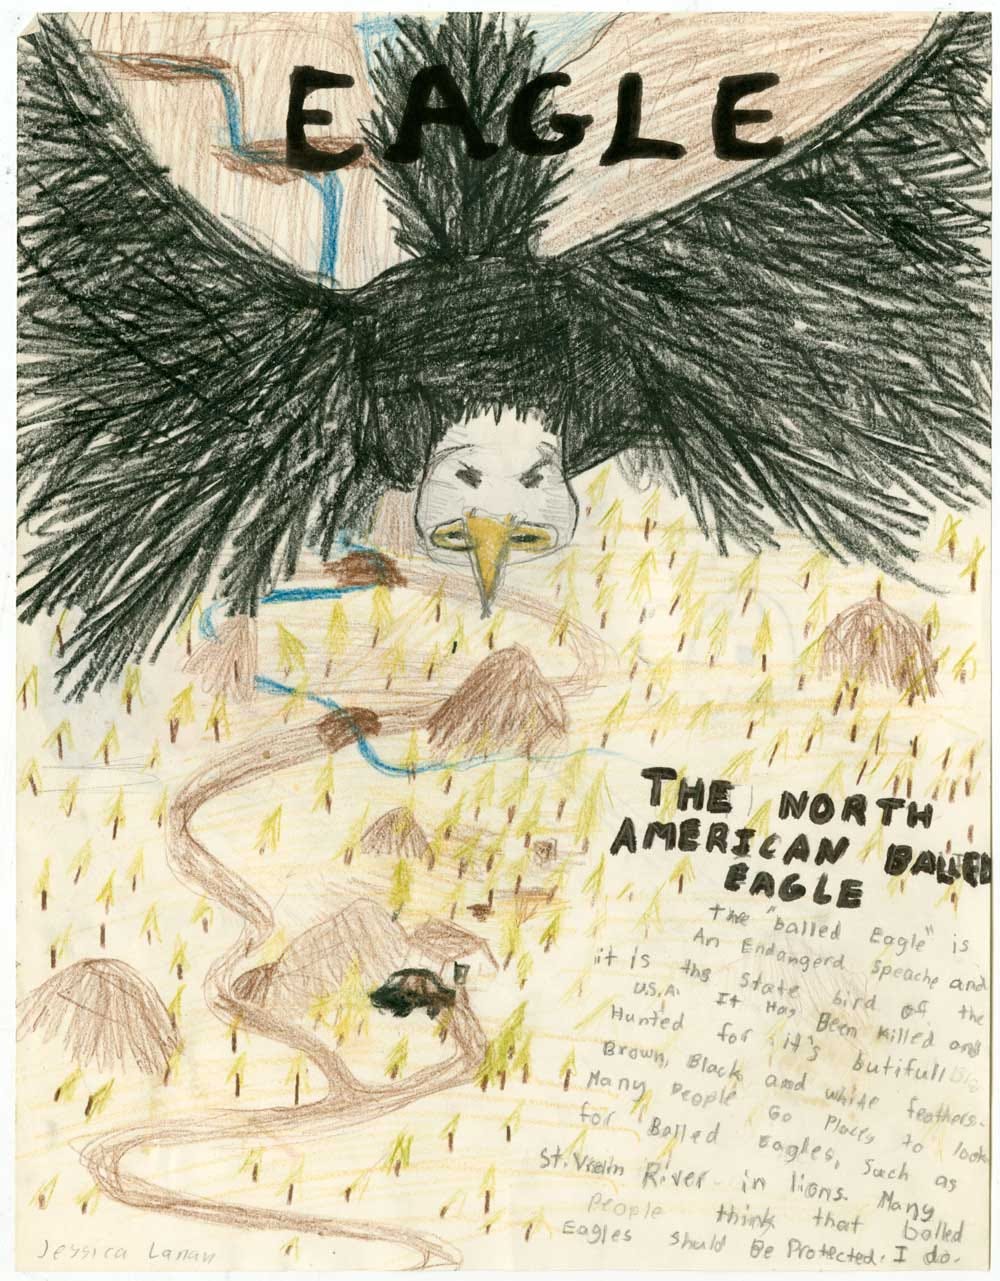 EAGLE
THE NORTH
AMERICAN BALLED
EAGLE
the "balled Eagle" is
An Endangerd Speache and
it is the State bird of the
U.S.A. It Has Been killed and
Hunted for it's butifull Big
Brown, Black and white feathers.
Many People Go Places to look
for Balled Eagles, Such as
St. Vrain River in lions. Many
People think that balled
Eagles Shuld Be Protected. I do.
Jessica Lanan